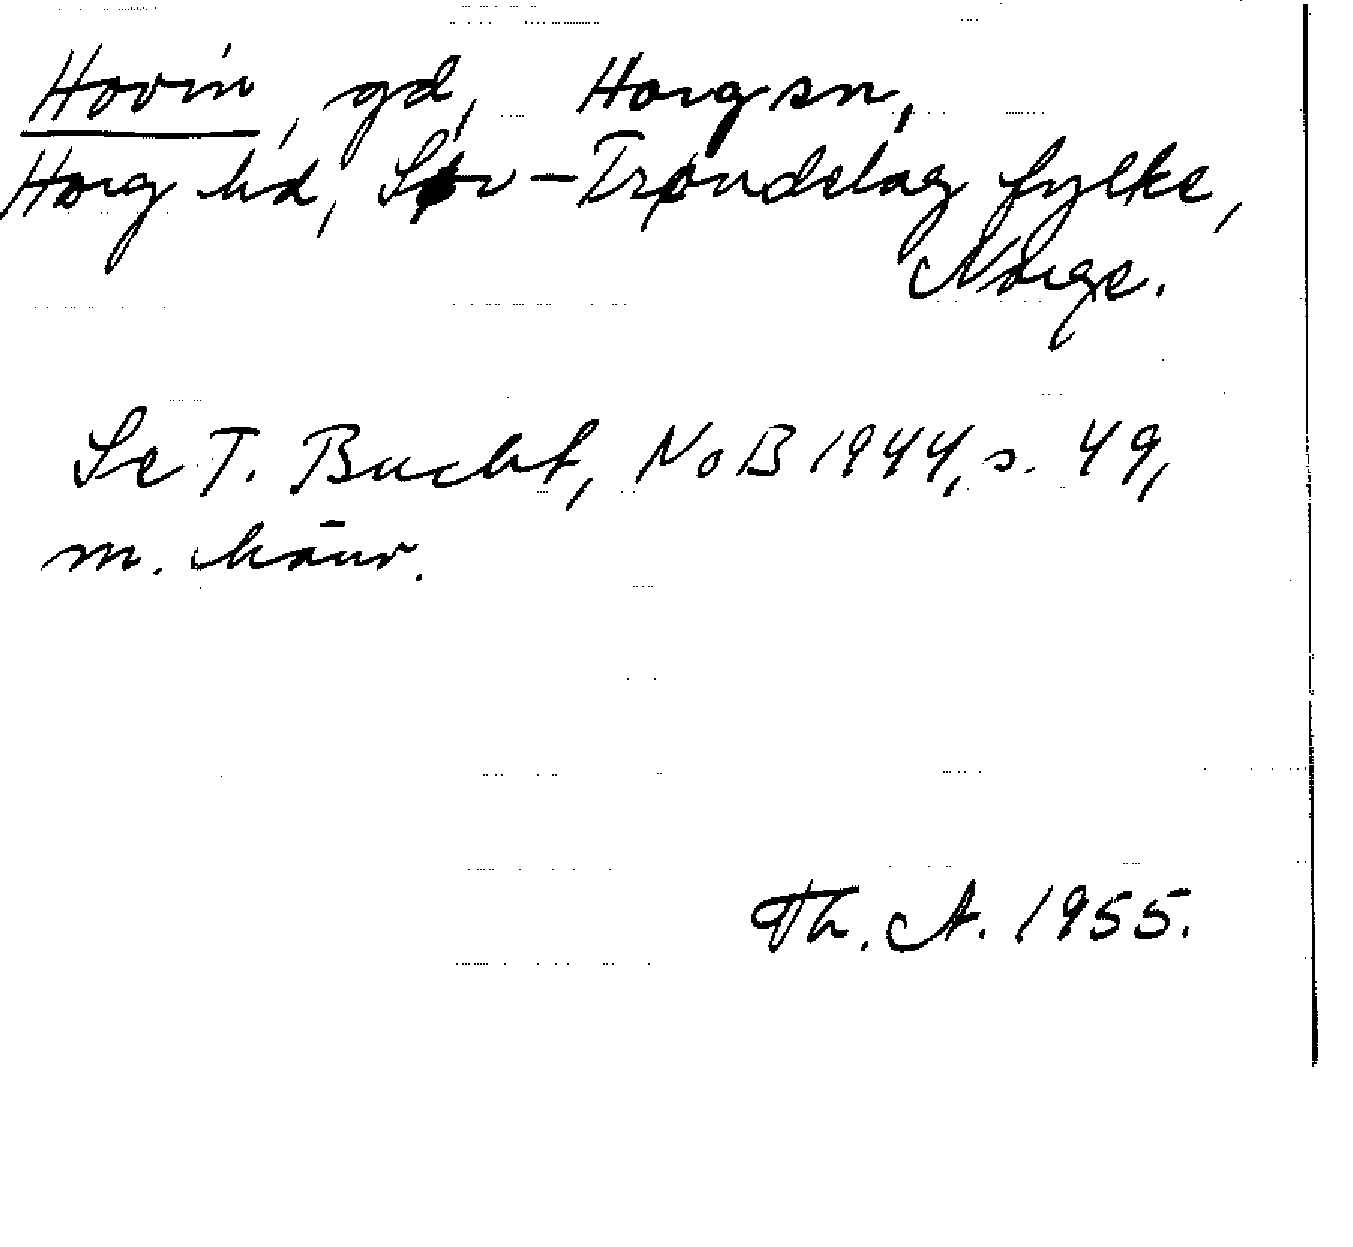 Hovin, gd, Horg sn,
Horg hd, Sør-Trøndelag fylke,
Norge.
Se T. Bucht, NoB 1944, s. 49,
m. hänv.
Th. A. 1955.